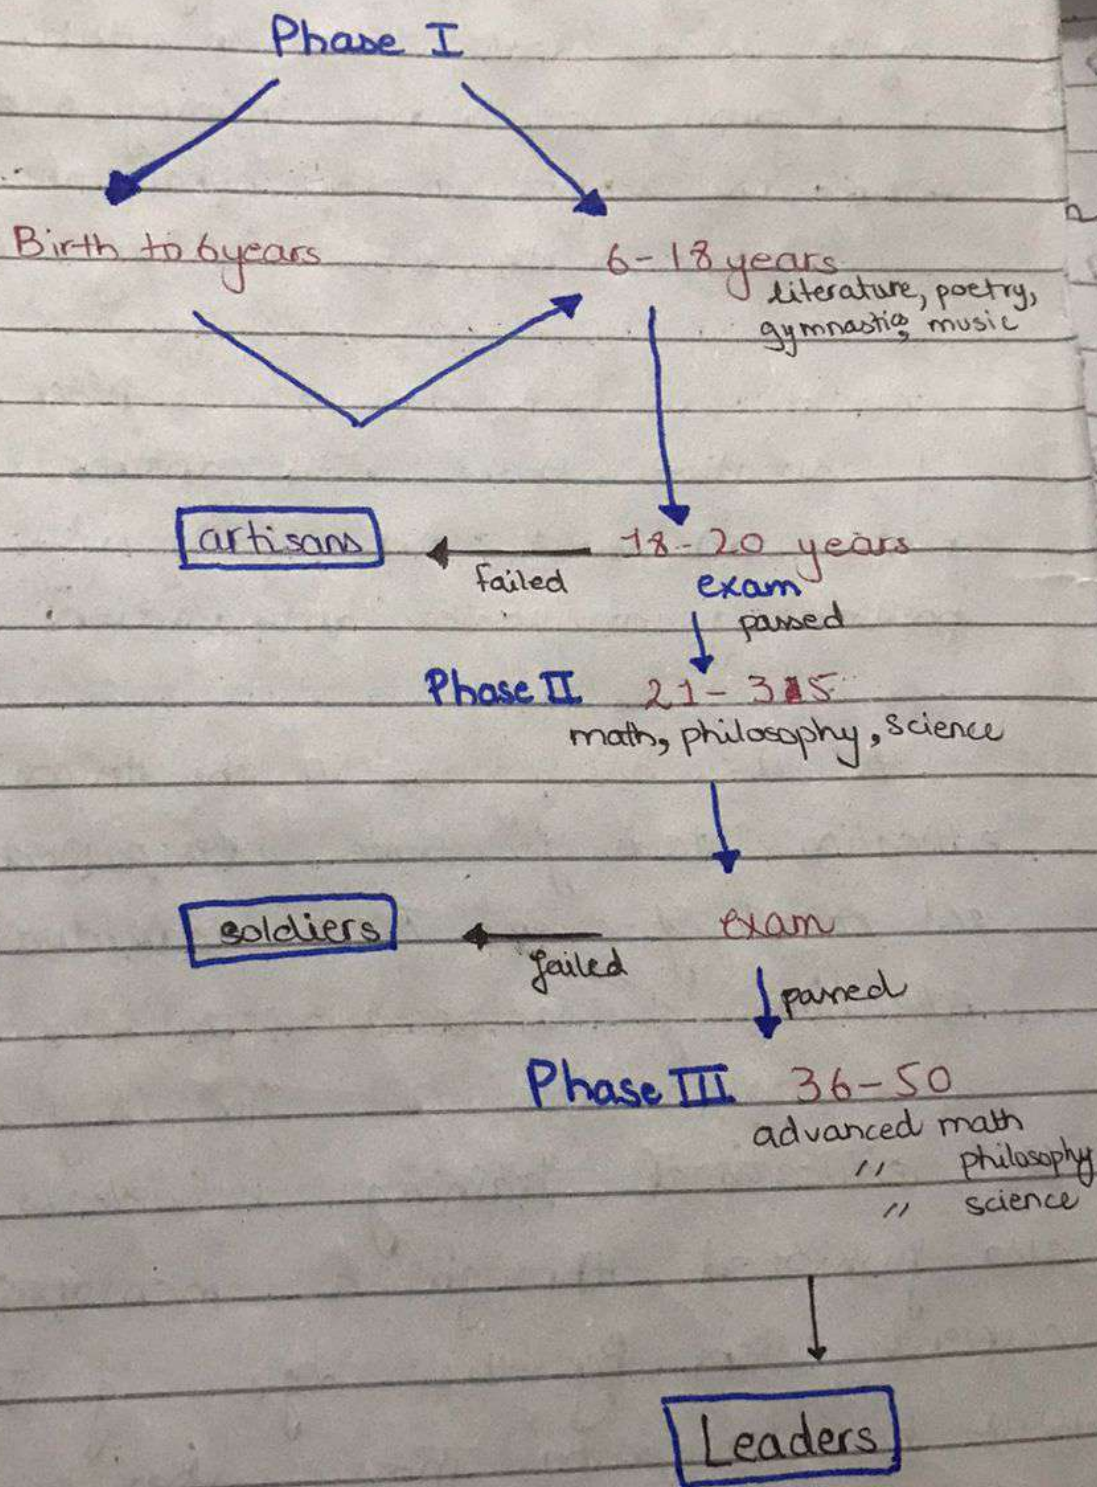 Phase I
Birth to 6years
6-18 years
literature, poetry,
gymnastics, music
artisans
failed
18-20 years
exam
passed
Phase II 21-35
math, philosophy, science
soldiers
failed
exam
passed
Phase III 36-50
advanced math
" philosophy
" science
Leaders